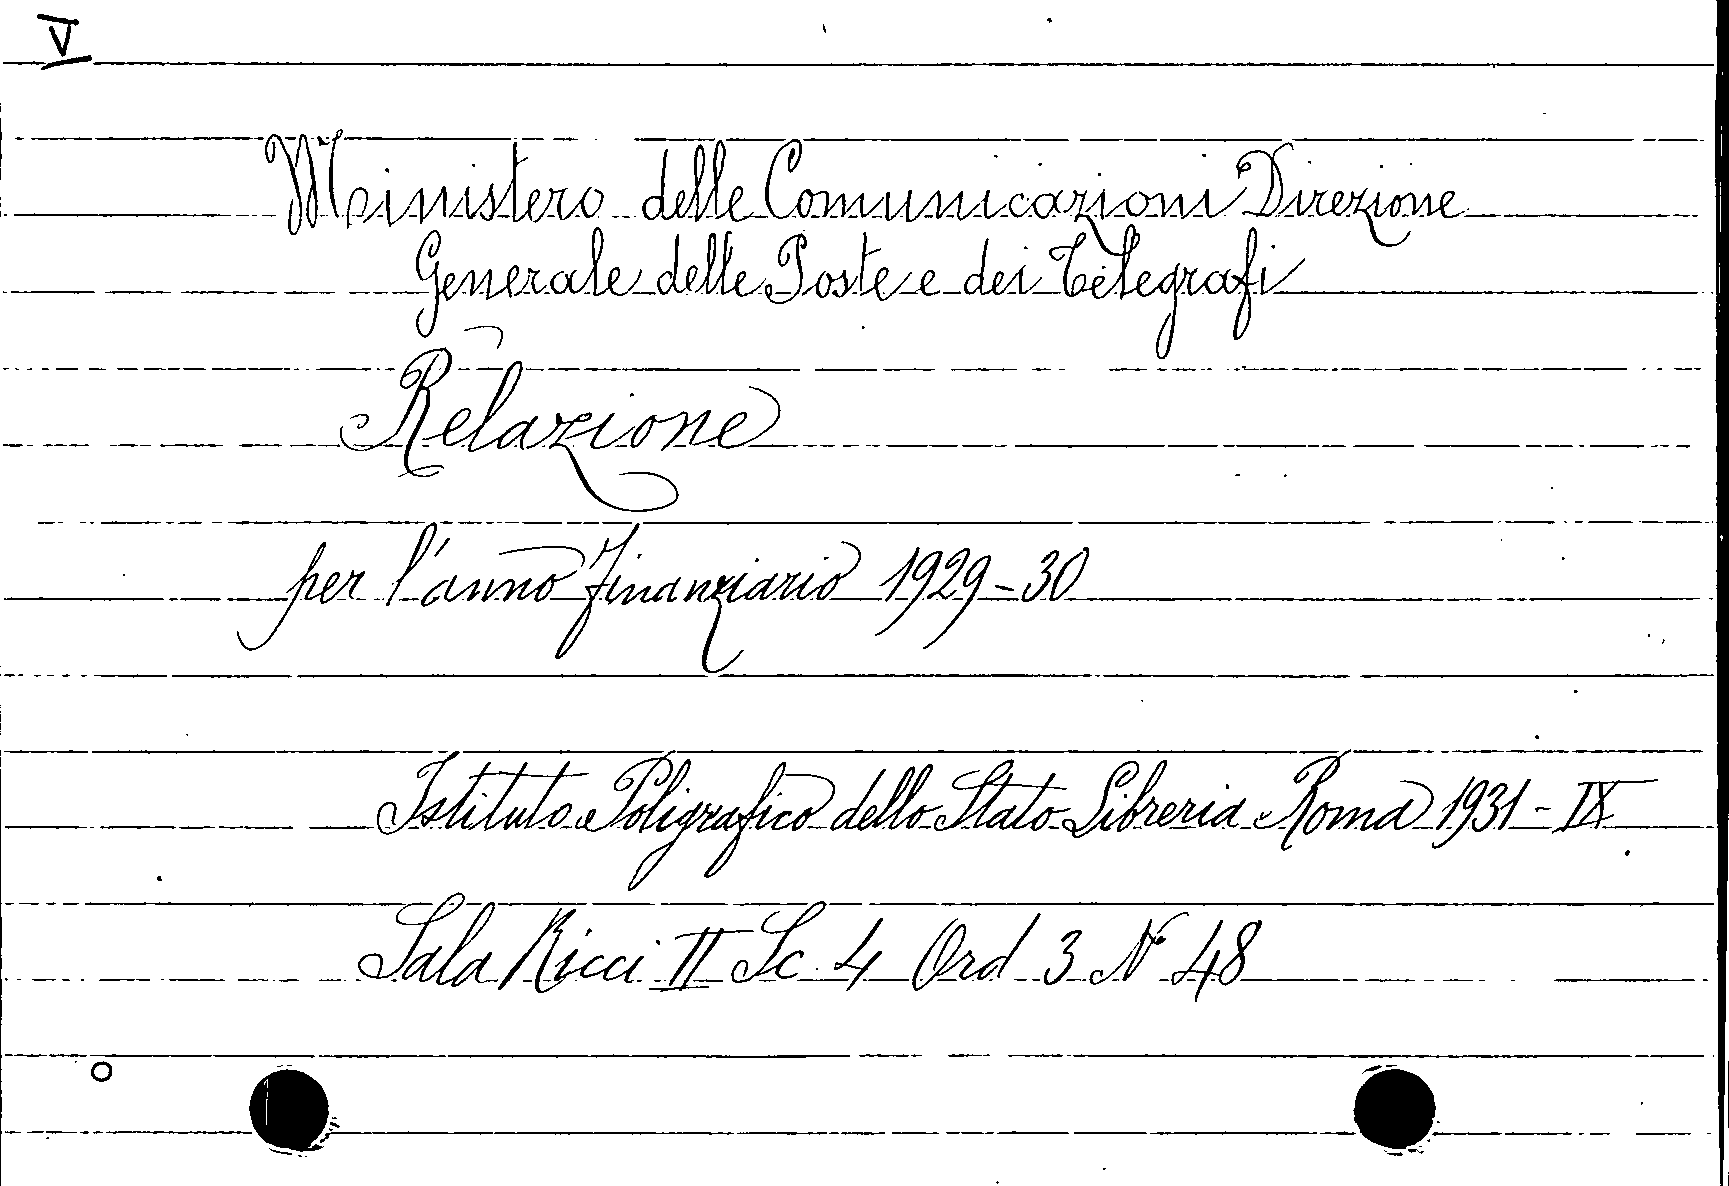 V
Ministero delle Comunicazioni Direzione
Generale delle Poste e dei Telegrafi
Relazione
per l'anno finanziario 1929-30
Istituto Poligrafico dello Stato Libreria Roma 1931-IX
Sala Ricci II Sc 4 Ord 3 N° 48